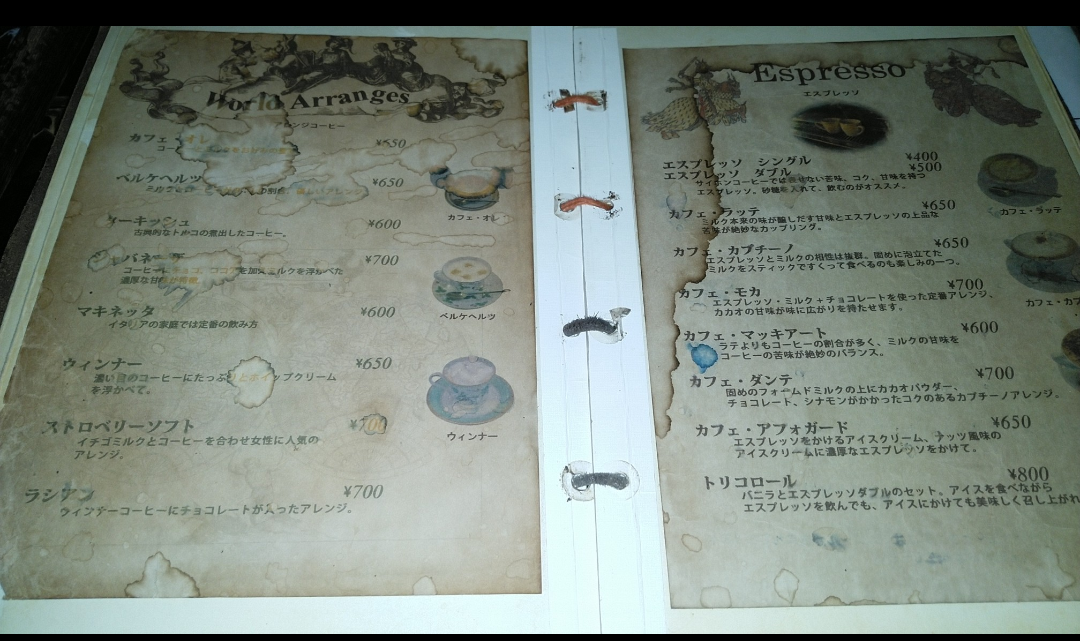 World Arranges
ンジコーヒー
カフェ・オレ ¥650
ベルケヘルツ ¥650
カフェ・オレ
ターキッシュ ¥600
古典的なトルコの煮出したコーヒー。
ジャバネーゼ ¥700
コーヒーにチョコ、ココアを加えミルクを浮かべた
濃厚な甘
ベルケヘルツ
マキネッタ ¥600
イタリアの家庭では定番の飲み方
ウィンナー ¥650
濃い目のコーヒーにたっぷりとホイップクリーム
を浮かべて。
ウィンナー
ストロベリーソフト ¥700
イチゴミルクとコーヒーを合わせ女性に人気の
アレンジ。
ラシアン ¥700
ウィンナーコーヒーにチョコレートが入ったアレンジ。
Espresso
エスプレッソ
エスプレッソ シングル ¥400
エスプレッソ ダブル ¥500
サイホンコーヒーでは出せない苦味、コク、甘味を持つ
エスプレッソ。砂糖を入れて、飲むのがオススメ。
カフェ・ラッテ ¥650
ミルク本来の味が醸しだす甘味とエスプレッソの上品な
苦味が絶妙なカップリング。
カフェ・ラッテ
カフェ・カプチーノ ¥650
エスプレッソとミルクの相性は抜群。固めに泡立てた
ミルクをスティックですくって食べるのも楽しみの一つ。
カフェ・カプ
カフェ・モカ ¥700
エスプレッソ・ミルク+チョコレートを使った定番アレンジ、
カカオの甘味が味に広がりを持たせます。
カフェ・マッキアート ¥600
ラテよりもコーヒーの割合が多く、ミルクの甘味を
コーヒーの苦味が絶妙のバランス。
カフェ・ダンテ ¥700
固めのフォームドミルクの上にカカオパウダー、
チョコレート、シナモンがかかったコクのあるカプチーノアレンジ。
カフェ・アフォガード ¥650
エスプレッソをかけるアイスクリーム、ナッツ風味の
アイスクリームに濃厚なエスプレッソをかけて。
トリコロール ¥800
バニラとエスプレッソダブルのセット、アイスを食べながら
エスプレッソを飲んでも、アイスにかけても美味しく召し上がれ